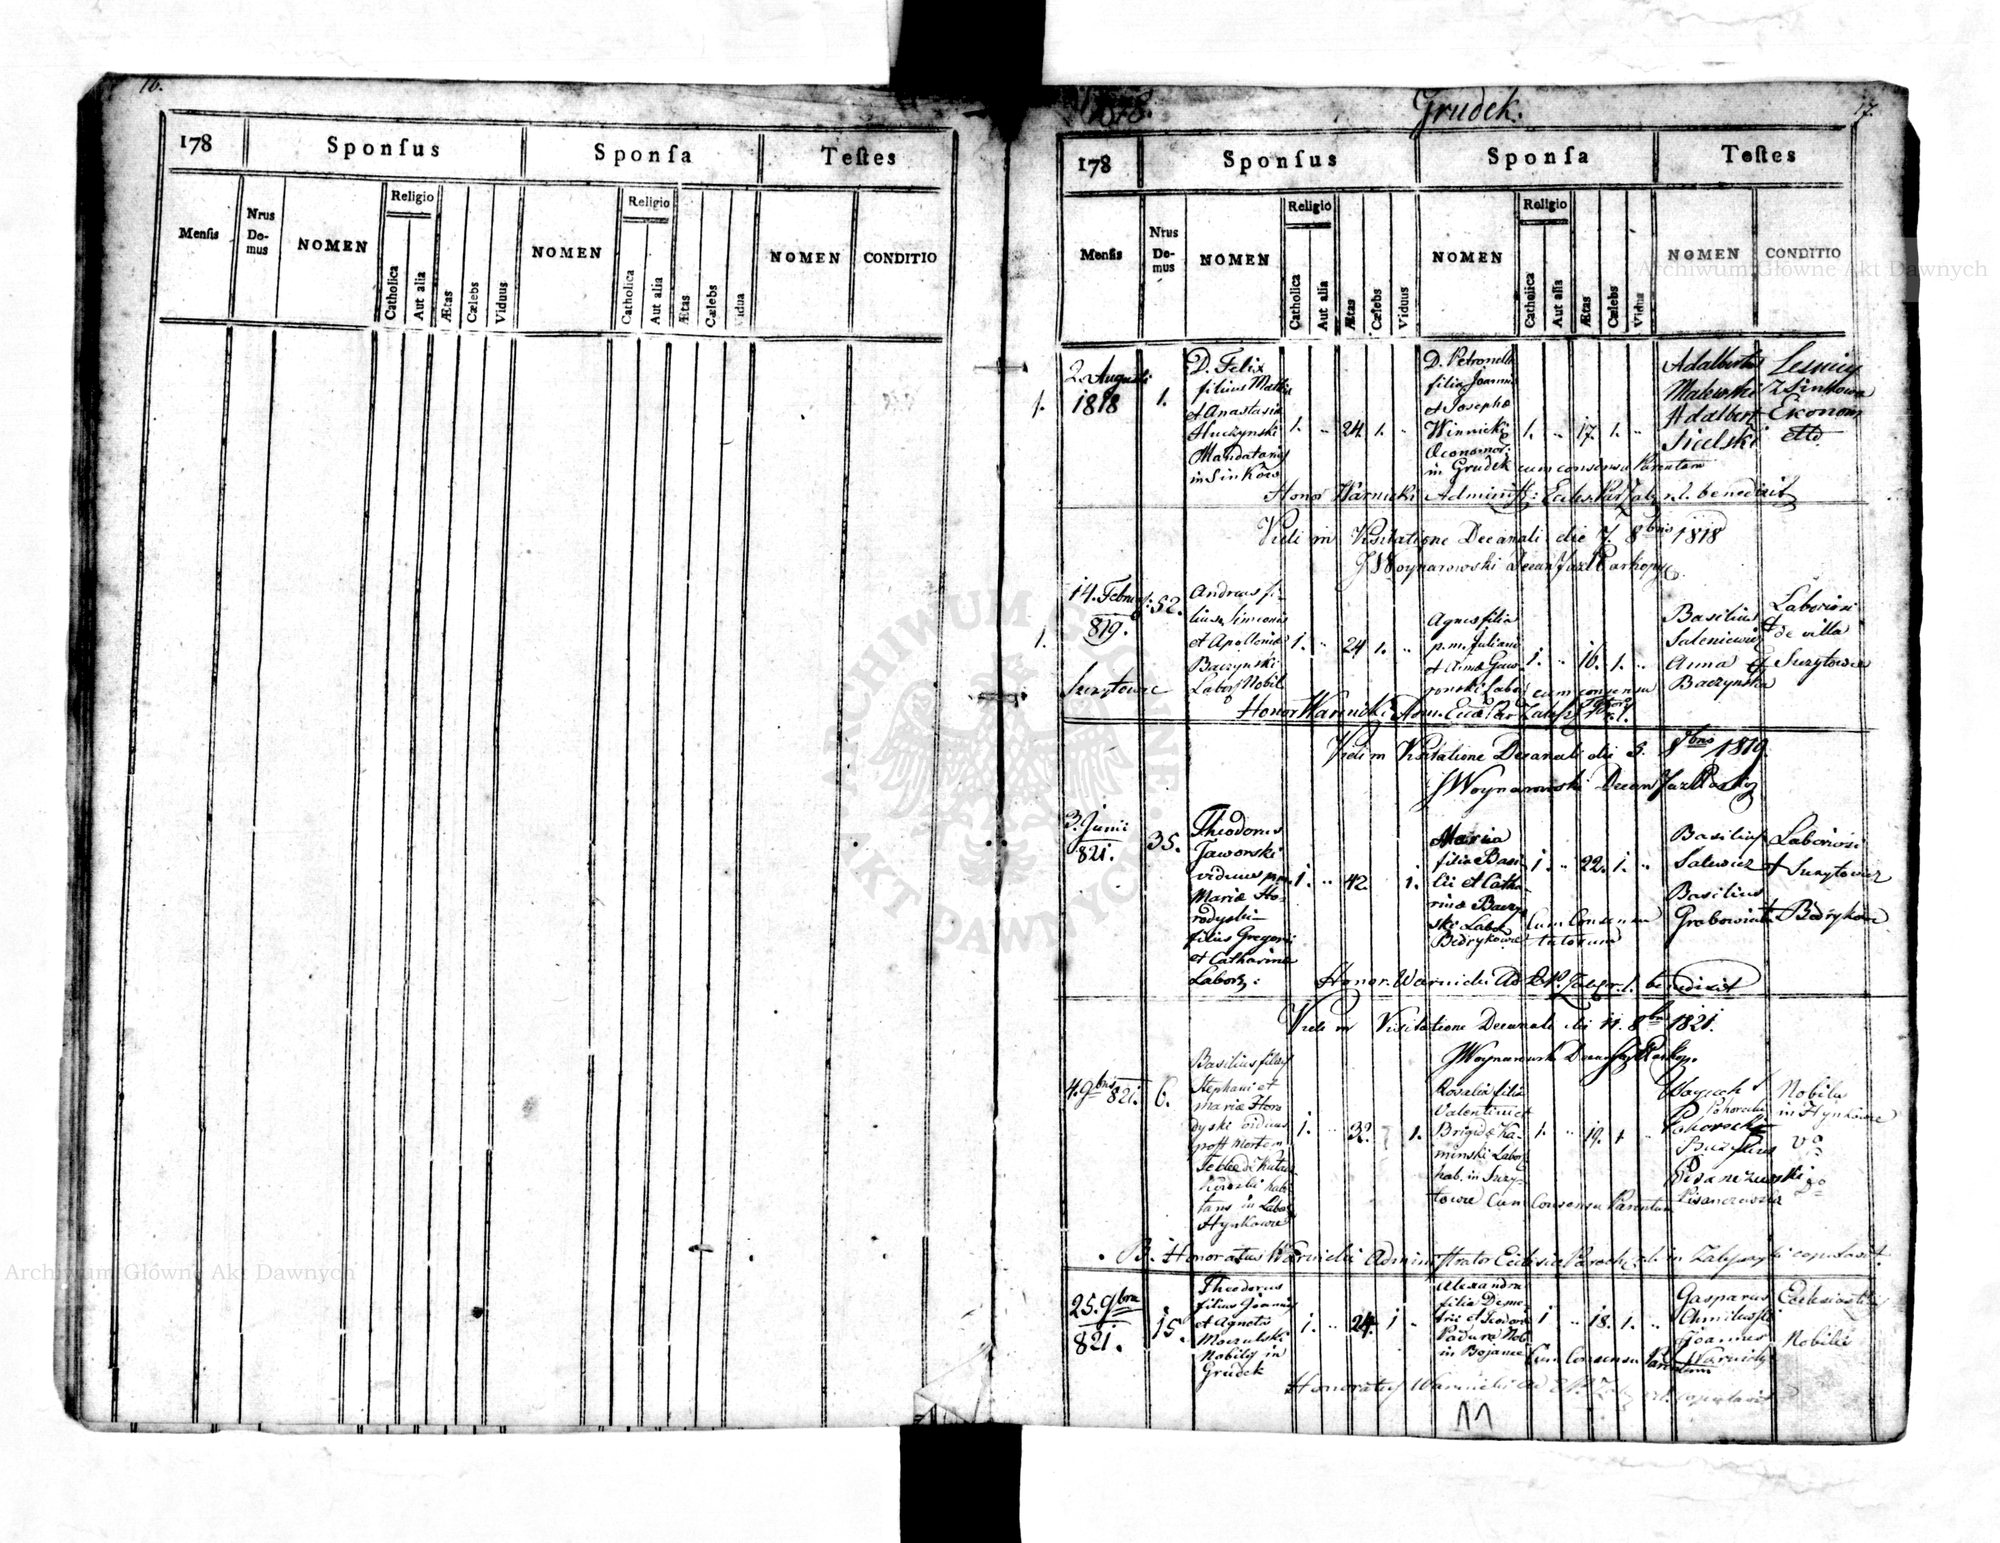 16.
178
Sponſus
Sponſa
Teſtes
Menſis
Nrus Do-mus
NOMEN
Religio
Catholica
Aut alia
Ætas
Cælebs
Viduus
NOMEN
Religio
Catholica
Aut alia
Ætas
Cælebs
Vidua
NOMEN
CONDITIO
1818.
Grudek.
17.
178
Sponſus
Sponſa
Teſtes
Menſis
Nrus De-mus
NOMEN
Religio
Catholica
Aut alia
Ætas
Cælebs
Viduus
NOMEN
Religio
Catholica
Aut alia
Ætas
Cælebs
Vidua
NOMEN
CONDITIO
1.
2. Augusti
1818
1.
D. Felix
filius Mathiæ
et Anastasiæ
Huczynski
Mandatarius
in Sinkow
1. " 24. 1. "
D. Petronella
filia Joannis
et Josephæ
Winnicki
Œconomor.
in Grudek cum consensu Parentum
1. " 17. 1. "
Adalbertus
Malewski
Adalbert
Sielski
Leśniczy
z Sinkowa
Ekonom
etto
Honor Warnicki Administr: Eccles. Par Zalesz r. l. benedixit
Vidi in Visitatione Decanali die 7. 8bris 1818
J Woynarowski Decan Jazl
1.
14. Februar:
819.
Surzytowce
52.
Andreas fi-
lius Simeonis
et Apolloniæ
Baczynski
Labor Nobil
1. " 24 1. "
Agnes filia
p.m. Juliani
et Annæ Gaw
ronski Labor cum consensu
1. " 16. 1. "
Basilius
Saleniewicz
Anna
Baczynska
Laboriosi
de villa
Surzytowce
Honor Warnicki Adm. Eccl Par Zalesz r. l.
Vidi in Visitatione Decanali die 3. 8bris 1819.
J Woynarowski Decan Jazl
3. Junii
821.
35.
Theodorus
Jaworski
viduus p.m.
Mariæ Ho-
rodyski
filius Gregorii
et Catharinæ
Labor:
1. " 42 1.
Maria
filia Basi-
lii et Catha-
rinæ Baczyn
ski Labor Cum Consensu
Bedrykowce tutorum
1. " 22. 1. "
Basilius
Salewicz
Basilius
Grabowiecki
Laboriosi
Surzytowce
Bedrykowce
Honor. Warnicki Ad E P. Zalesz r. l. benedixit
Vidi in Visitatione Decanali die 11. 8bris 1821.
J Woynarowski Decan Jazl
4. 9bris 821.
6.
Basilius filius
Stephani et
Mariæ Horo
dyski viduus
post Mortem
habi
tans in Labor
Hynkowce
1. " 32. 1.
Rosalia filia
Valentini et
Brigidæ Ka-
minski Labor
hab. in Surzy-
towce Cum Consensu Parentum
1. " 19. 1 "
Woyciech
Pohorecki
Pohorecki
Bazylius
Pisanczewski
Nobiles
in Hynkowce
Vo
Do
B. Honoratus Warnicki Administrator Ecclesiæ Paroch: r. l. in Zaleszczyki copulavit.
25. 9bris
821.
15.
Theodorus
filius Joannis
et Agnetis
Moczulski
Nobilis in
Grudek
1. " 24. 1 "
Alexandra
filia Deme-
trii et Teodora
Padura Nob
in Bojance Cum Consensu Parentum
1 " 18. 1. "
Gasparus
Chmilewski
Joannes
Warnicki
Ecclesiasticus
Nobilis
Honoratus Warnicki Ad E P. Zal r. l. copulavit
Archiwum Główne Akt Dawnych
Archiwum Główne Akt Dawnych
ARCHIWUM GŁÓWNE AKT DAWNYCH